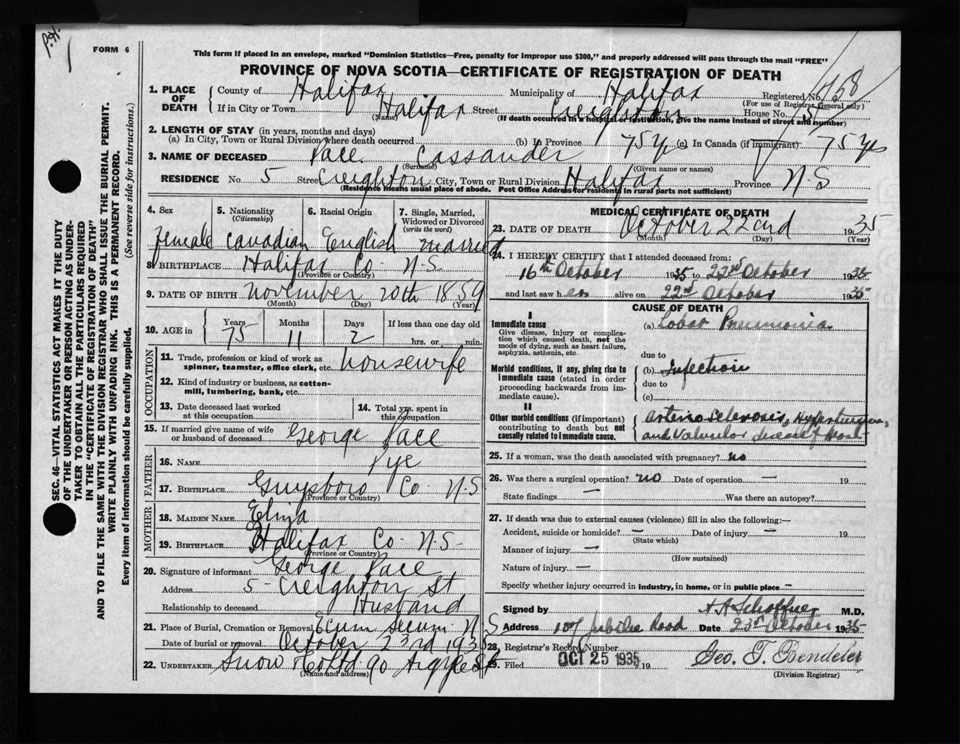 P.H.
FORM 6
This form if placed in an envelope, marked "Dominion Statistics—Free, penalty for improper use $300," and properly addressed will pass through the mail "FREE"
PROVINCE OF NOVA SCOTIA—CERTIFICATE OF REGISTRATION OF DEATH
1. PLACE OF DEATH County of Halifax Municipality of Halifax Registered No.
(For use of Registrar General only)
If in City or Town Halifax Street Creighton House No. 5
(Name) (If death occurred in a hospital or institution, give the name instead of street and number)
2. LENGTH OF STAY (in years, months and days)
(a) In City, Town or Rural Division where death occurred (b) In Province 75 yrs (c) In Canada (if immigrant) 75 yrs
3. NAME OF DECEASED Pace Cassander
(Surname) (Given name or names)
RESIDENCE No. 5 Street Creighton City, Town or Rural Division Halifax Province N.S
(Residence means usual place of abode. Post Office Address for residents in rural parts not sufficient)
4. Sex 5. Nationality (Citizenship) 6. Racial Origin 7. Single, Married, Widowed or Divorced (write the word)
Female Canadian English married
8. BIRTHPLACE Halifax Co. N.S.
(Province or Country)
9. DATE OF BIRTH November 20th 1859
(Month) (Day) (Year)
10. AGE in Years Months Days If less than one day old
75 11 2 hrs. or min.
OCCUPATION
11. Trade, profession or kind of work as spinner, teamster, office clerk, etc. housewife
12. Kind of industry or business, as cotton-mill, lumbering, bank, etc.
13. Date deceased last worked at this occupation 14. Total yrs. spent in this occupation
15. If married give name of wife or husband of deceased George Pace
FATHER
16. Name Pye
17. Birthplace Guysboro Co. N.S.
(Province or Country)
MOTHER
18. Maiden Name Eliza
19. Birthplace Halifax Co. N.S.
(Province or Country)
20. Signature of informant George Pace
Address 5 Creighton St
Relationship to deceased Husband
21. Place of Burial, Cremation or Removal Ecum Secum N.S
Date of burial or removal October 23rd 1935
22. UNDERTAKER Snow Co Ltd 90 Argyle St
(Name and address)
MEDICAL CERTIFICATE OF DEATH
23. DATE OF DEATH October 22nd 1935
(Month) (Day) (Year)
24. I HEREBY CERTIFY that I attended deceased from:
16th October 1935 to 22nd October 1935
and last saw her alive on 22nd October 1935
CAUSE OF DEATH
I
Immediate cause
Give disease, injury or complication which caused death, not the mode of dying, such as heart failure, asphyxia, asthenia, etc.
(a) Lobar Pneumonia
due to
Morbid conditions, if any, giving rise to immediate cause (stated in order proceeding backwards from immediate cause).
(b) Infection
due to
(c)
II
Other morbid conditions (if important) contributing to death but not causally related to immediate cause.
Arterio Sclerosis, Hypertension, and Valvular Disease of Heart
25. If a woman, was the death associated with pregnancy? no
26. Was there a surgical operation? no Date of operation — 19
State findings — Was there an autopsy?
27. If death was due to external causes (violence) fill in also the following:—
Accident, suicide or homicide? — Date of injury — 19
(State which)
Manner of injury —
(How sustained)
Nature of injury —
Specify whether injury occurred in industry, in home, or in public place —
Signed by A. A. Schaffner M.D.
Address 107 Jubilee Road Date 23rd October 1935
28. Registrar's Record Number
29. Filed OCT 25 1935 19
(Division Registrar)
SEC. 46—VITAL STATISTICS ACT MAKES IT THE DUTY
OF THE UNDERTAKER OR PERSON ACTING AS UNDER-
TAKER TO OBTAIN ALL THE PARTICULARS REQUIRED
IN THE "CERTIFICATE OF REGISTRATION OF DEATH"
AND TO FILE THE SAME WITH THE DIVISION REGISTRAR WHO SHALL ISSUE THE BURIAL PERMIT.
WRITE PLAINLY WITH UNFADING INK. THIS IS A PERMANENT RECORD.
Every item of information should be carefully supplied. (See reverse side for instructions.)